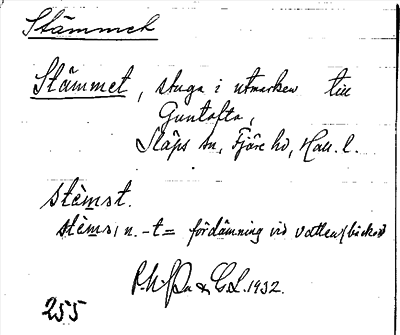 Stämmet
Stämmet, stuga i utmarken till
Guntofta,
Släps sn, Fjäre hd, Hall. l.
stèmst.
stèms, n. -t = fördämning vid vatten (bäcken)
& C.L. 1932.
255